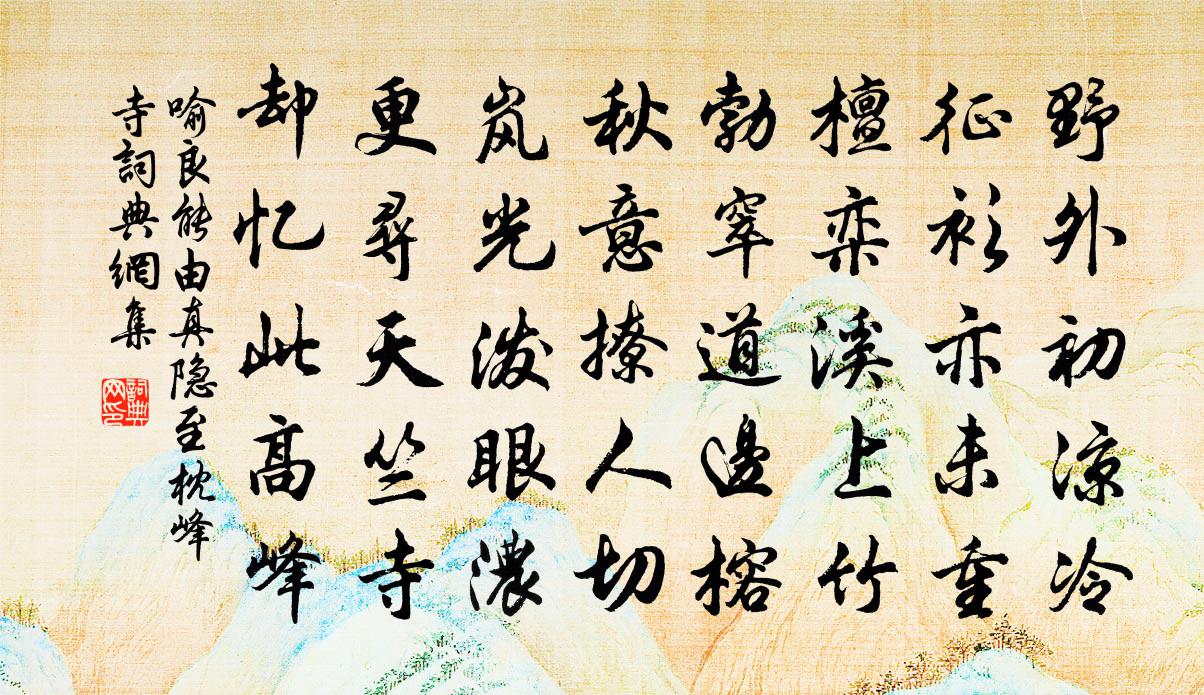 野外初凉冷
征衫亦未重
檀栾溪上竹
勃窣道邊榕
秋意撩人切
岚光泼眼濃
更尋天竺寺
却忆此高峰
喻良能由真隐至枕峰
寺詞典網集
詞典网印